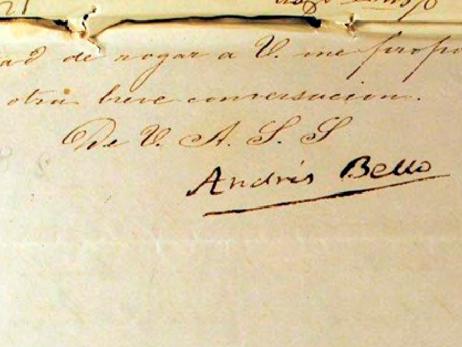 ad de rogar a V. me propo
otra breve conversacion.
De V. A. S. S
Andrés Bello